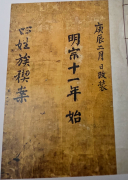 庚辰二月日改裝
明宗十一年始
姓族稧案